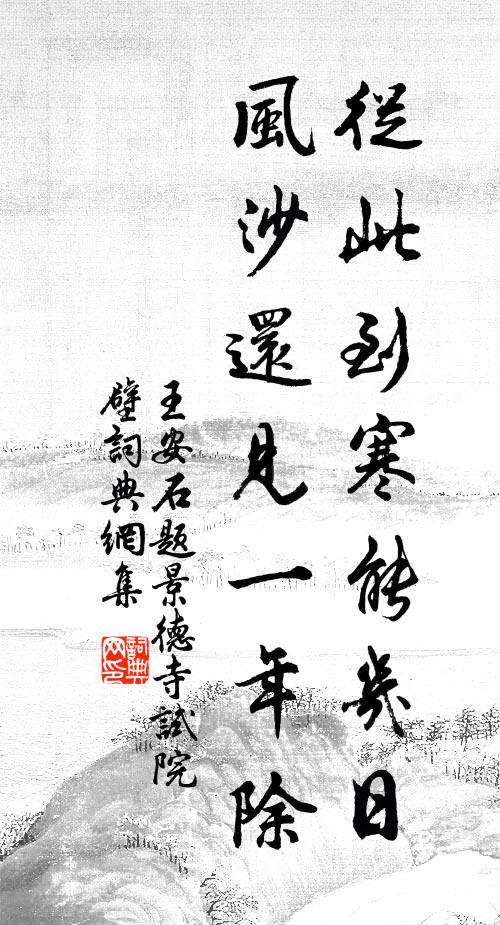 從此到寒能幾日
風沙還見一年除
王安石題景德寺試院
壁詞典網集
詞典
网印